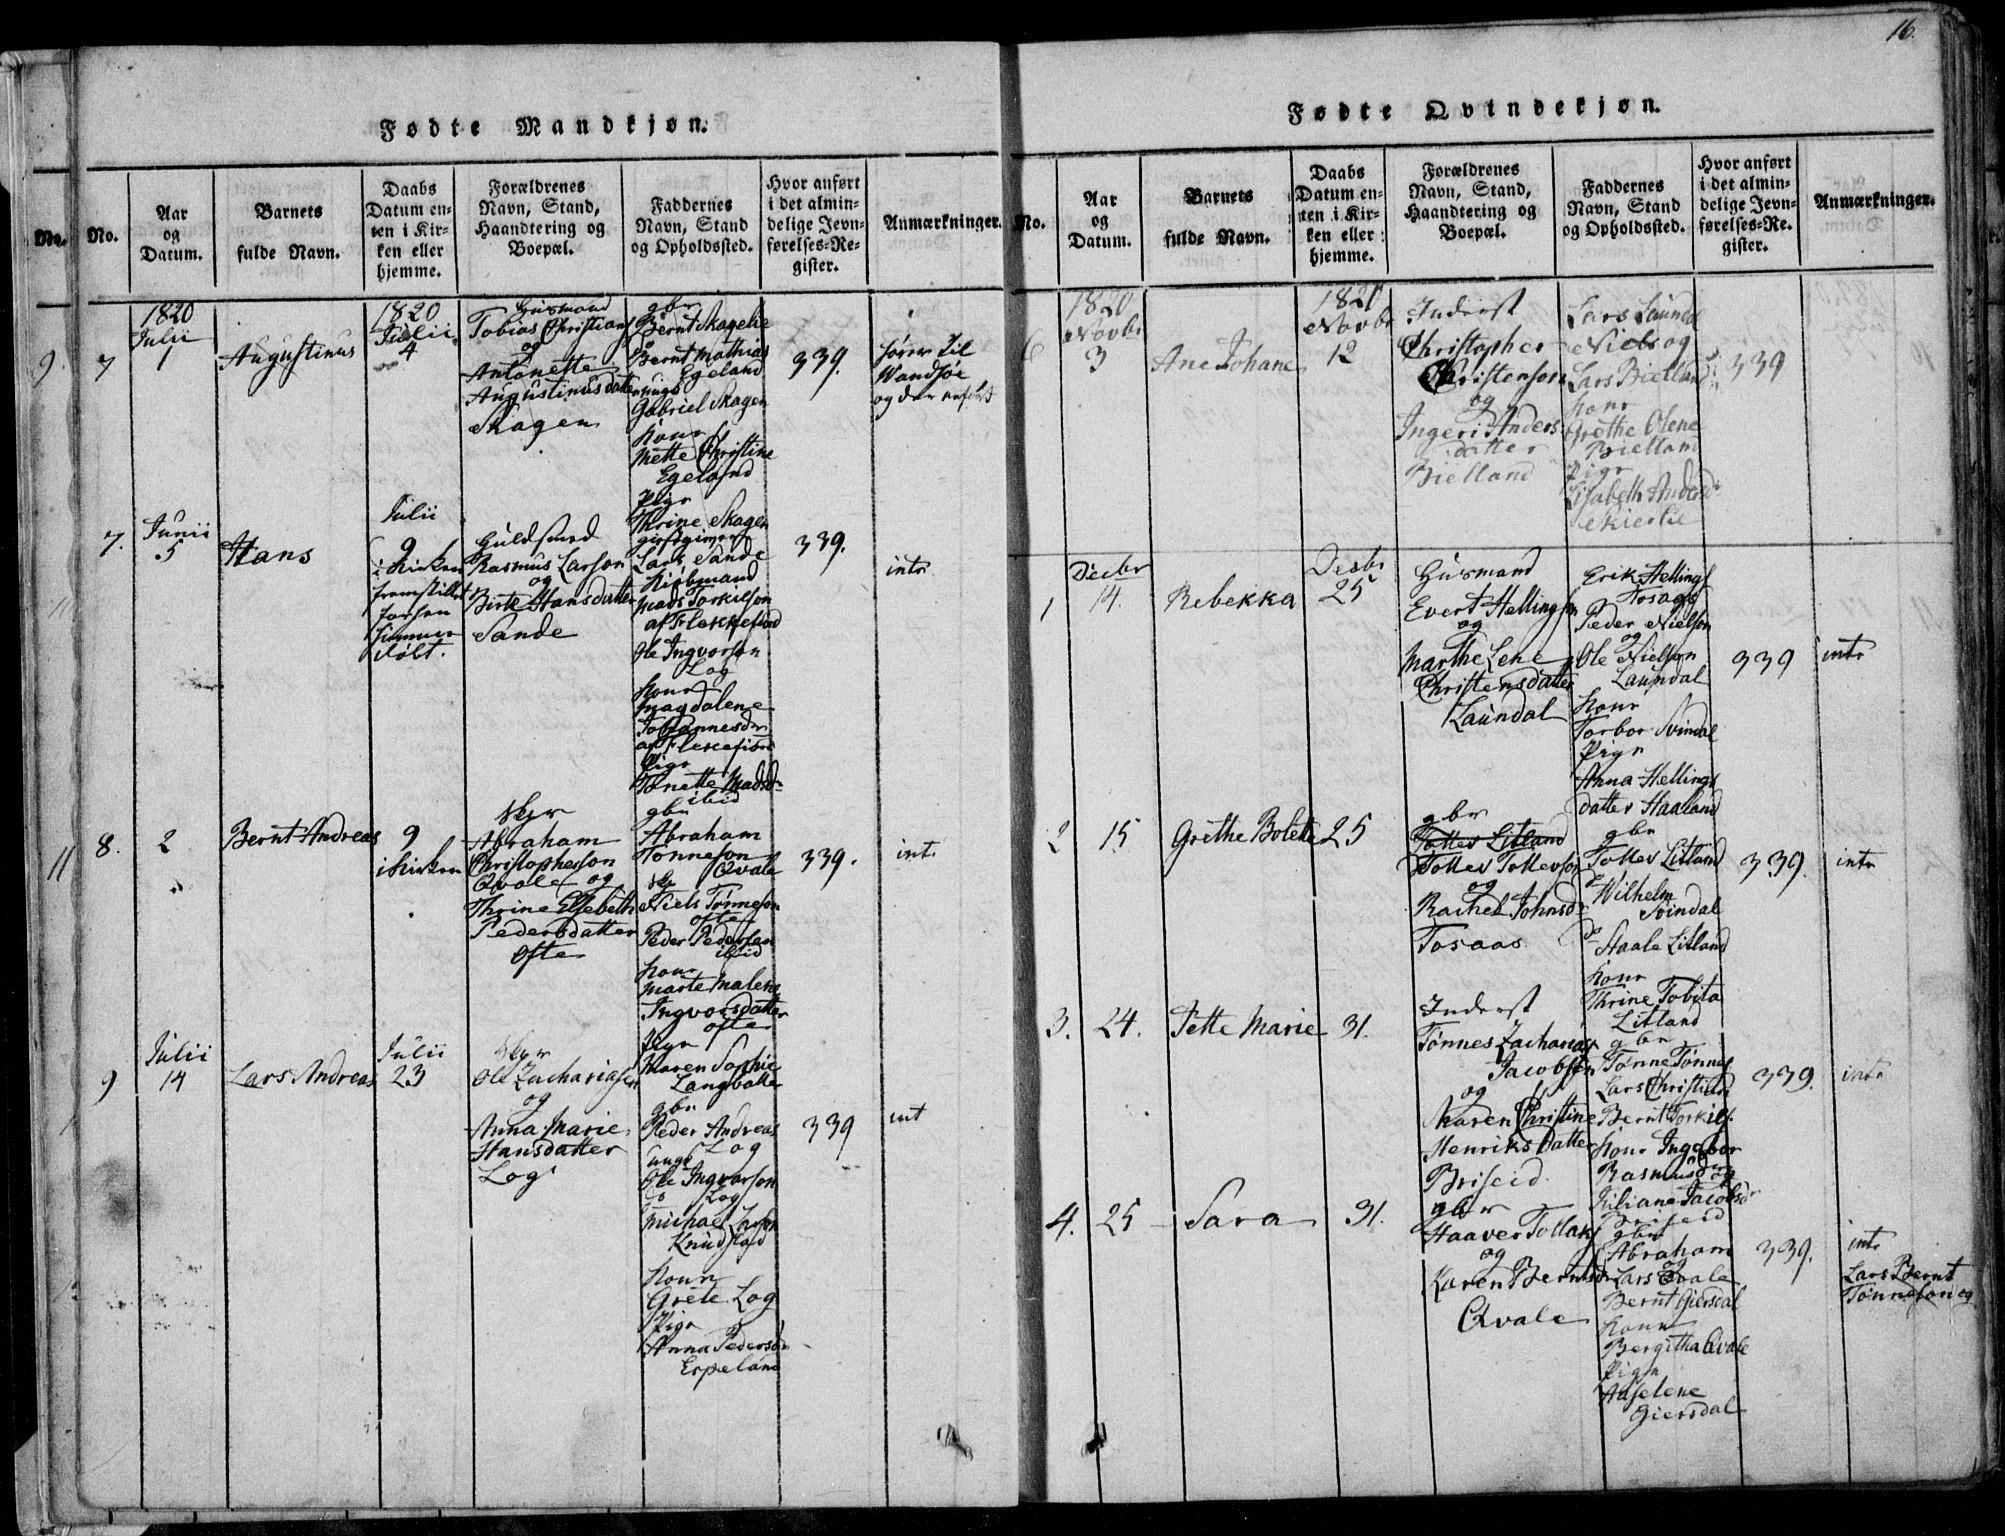 16.
Fødte Mandkjøn.
No.
No.
Aar
og
Datum.
Barnets
fulde Navn.
Daabs
Datum en-
ten i Kir-
ken eller
hjemme.
Forældrenes
Navn, Stand,
Haandtering og
Boepæl.
Faddernes
Navn, Stand
og Opholdssted.
Hvor anført
i det almin-
delige Jevn-
førelses-Re-
gister.
Anmærkninger.
9
7
1820
Julii
1
Augustinus
1820
Julii
4
Husmand
Tobias Christians
og
Antonette
Augustinusdatter
Skagen
gbr
Bernt Skagelie
Bernt Mathias
Egeland
ungk
Gabriel Skagen
Kone
Mette Christine
Egeland
Pige
Thrine Skagen
339.
hører til
Wandsøe
og der anført
7.
Junii
5
Hans
Julii
9
i Kirken
fremstillet
forhen
hjemme
døbt.
Guldsmed
Rasmus Larson
og
Birte Hansdatter
Sande
giestgiver
Lars Sande
Kiøbmand
Mads Torkilson
af Flekkefiord
Ole Ingvorson
Log
Kone
Magdalene
Johannesdr
af Flekkefiord
Pige
Tonette Madsdr
ibid
339.
intr
11
8.
2
Bernt Andreas
9
i Kirken
Skpr
Abraham
Christopherson
Qvale og
Thrine Elsebeth
Pedersdatter
Ofte
gbr
Abraham
Tønneson
Qvale
Niels Tønneson
Ofte
Peder Pedersen
ibid
Kone
Marte Malene
Ingvorsdatter
Ofte
Pige
Maren Sophie
Langbolle
339.
int.
9
Julii
14
Lars Andreas
Julii
23
Skpr
Ole Zachariasen
og
Anna Marie
Hansdatter
Log
gbr
Peder Andreas
Log
ungk
Ole Ingvorson
Log
Michael Larson
Knudstad
Kone
Grete Log
Pige
Anna Pedersdr
Espeland
339
int
Fødte Qvindekjøn.
No.
Aar
og
Datum.
Barnets
fulde Navn.
Daabs
Datum en-
ten i Kir-
ken eller
hjemme.
Forældrenes
Navn, Stand,
Haandtering og
Boepæl.
Faddernes
Navn, Stand
og Opholdssted.
Hvor anført
i det almin-
delige Jevn-
førelses-Re-
gister.
Anmærkninger.
6
1820
Novbr
3
Ane Johane
1820
Novbr
12
Inderst
Christopher
Christenson
og
Ingeri Anders
datter
Bielland
Lars Laundal
Niels og
Lars Bielland
Kone
Grethe Olene
Bielland
Pige
Elisabeth Andersd
Skierlie
339
1
Decbr
14.
Rebekka
Decbr
25
Husmand
Evert Hellingson
og
Marthe Lene
Christensdatter
Laundal
Erik Hellings
Tosaas
Peder Nielson
og
Ole Nielson
Laundal
Kone
Torbor Svindal
Pige
Anna Hellings
datter Haaland
339
intr
2
15
Grethe Bolette
25
gbr
Tolles Litland
Tolles Tollevson
og
Rachel Johnsd
Tosaas
gbr
Tolles Litland
do
Wilhelm
Svindal
do
Staale Litland
Kone
Thrine Tobita
Litland
339.
intr
3.
24.
Tette Marie
31.
Inderst
Tønnes Zacharias
Jacobsen
og
Maren Christine
Henriks Datter
Briseid
gbr
Tønne Tønnes
Lars Christian
Bernt Torkils
Kone Ingebor
Rasmusdr og
Juliane Jacobsdr
Briseid
339.
intr
4.
25
Sara
31.
gbr
Haaver Tollaks
og
Karen Berntsdr
Qvale
gbr
Abraham
og
Lars Qvale
Bernt Giersdal
Kone
Bergitha Qvale
Pige
Adselene
Giersdal
339.
intr
Lars Bernt
Tønneson og